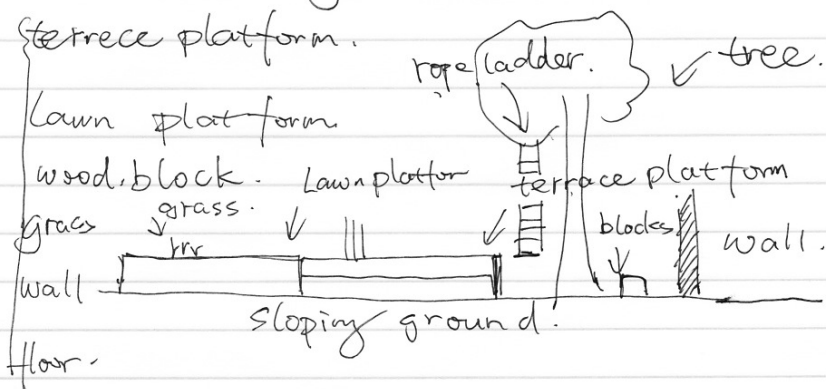 terrece platform.
rope ladder.
tree.
Lawn platform
wood. block.
Lawn platfor
terrace platform
grass.
grass
blocks
wall.
wall
sloping ground.
floor.